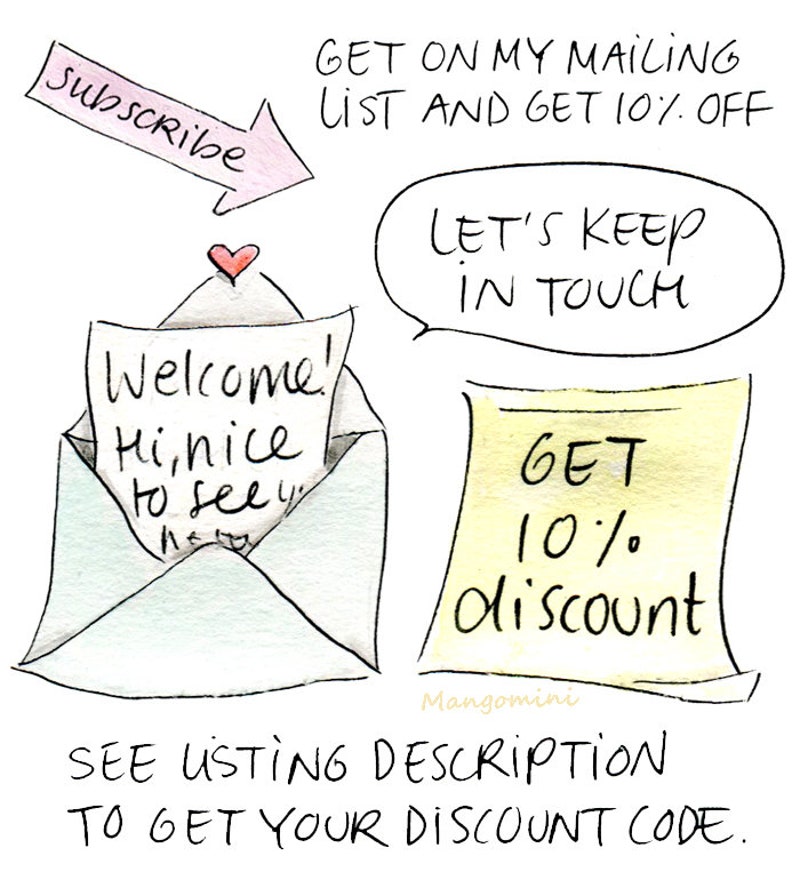 subscribe
GET ON MY MAILING
LIST AND GET 10% OFF
LET'S KEEP
IN TOUCH
Welcome!
Hi, nice
to see
GET
10%
discount
Mangomini
SEE LISTING DESCRIPTION
TO GET YOUR DISCOUNT CODE.